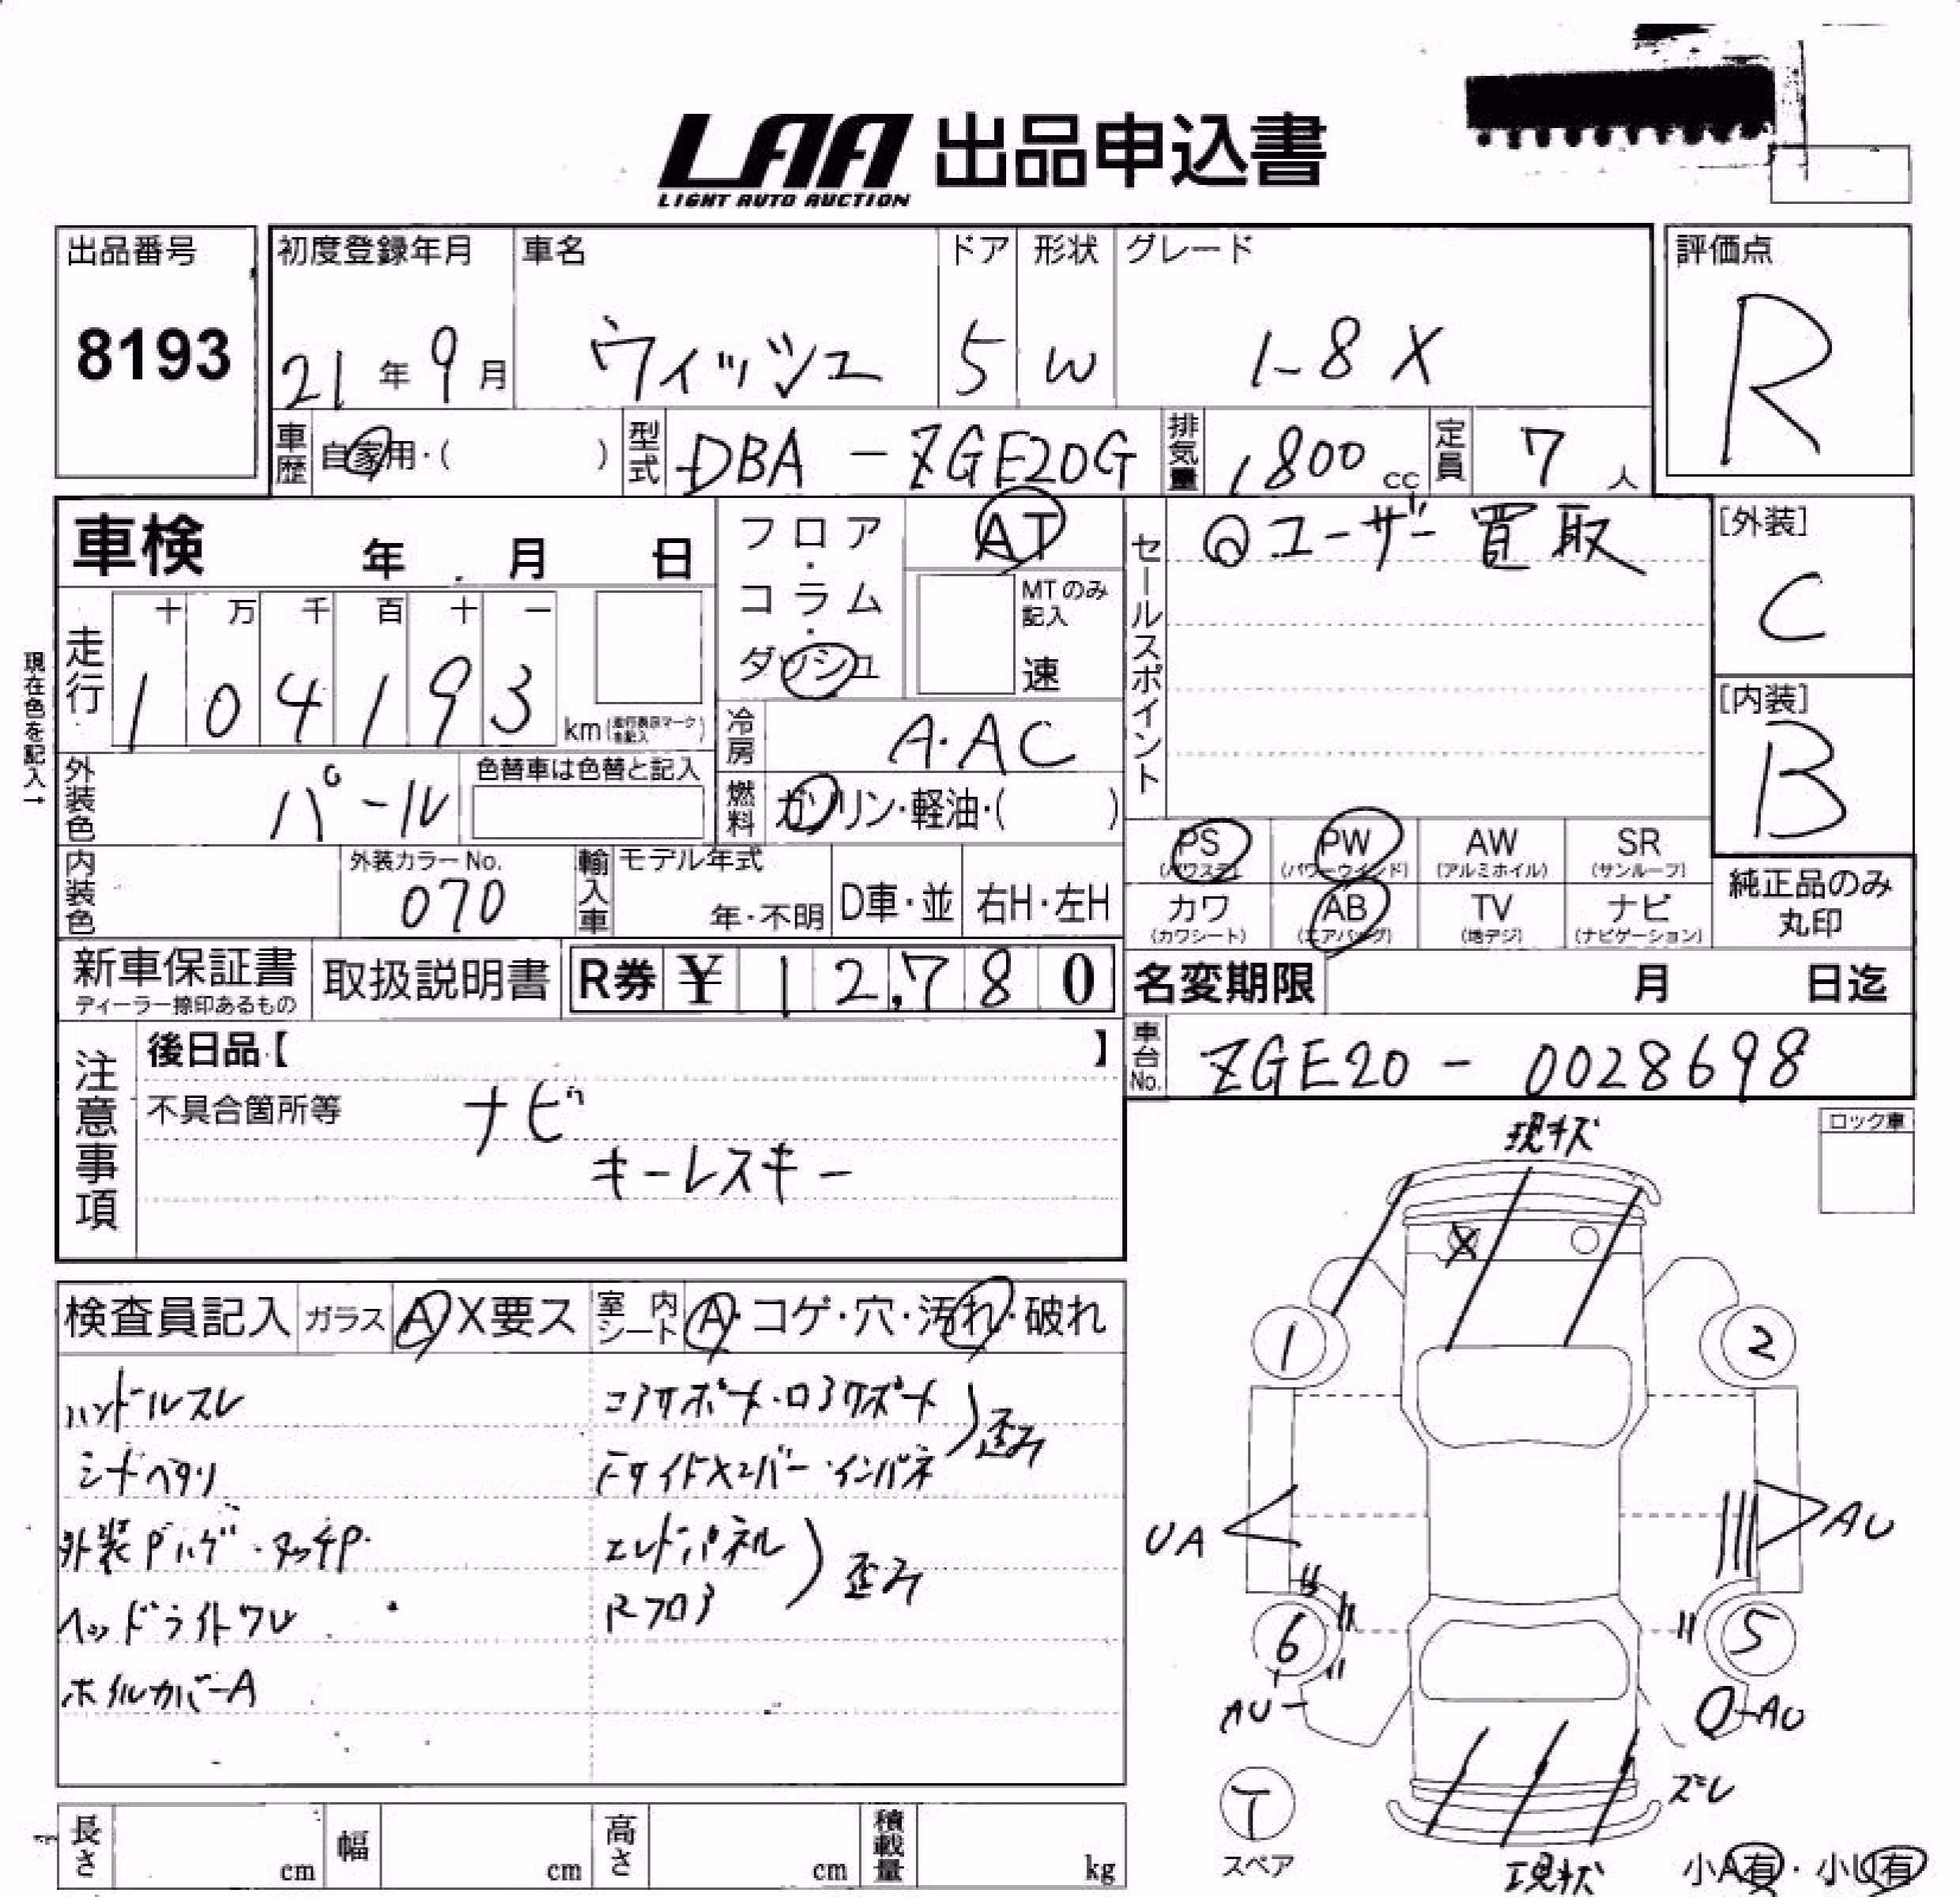 LAA 出品申込書
LIGHT AUTO AUCTION
出品番号
8193
初度登録年月 車名 ドア 形状 グレード
21年9月 ウィッシュ 5 W 1.8X
評価点
R
車歴 自家用・( ) 型式 DBA-ZGE20G 排気量 1800cc 定員 7人
車検 年 月 日
フロア・コラム・ダッシュ
AT
MTのみ記入
速
セールスポイント
◎ユーザー買取
[外装]
C
[内装]
B
現在色を記入→
走行 十 万 千 百 十 一
104193 km(走行表示マーク を記入)
冷房 A・AC
外装色 パール
色替車は色替と記入
燃料 ガソリン・軽油・( )
内装色
外装カラーNo.
070
輸入車 モデル年式
年・不明 D車・並 右H・左H
PS (パワステ) PW (パワーウインド) AW (アルミホイル) SR (サンルーフ)
カワ (カワシート) AB (エアバッグ) TV (地デジ) ナビ (ナビゲーション)
純正品のみ
丸印
新車保証書
ディーラー捺印あるもの
取扱説明書
R券 ¥ 12,780
名変期限 月 日迄
車台No. ZGE20-0028698
注意事項
後日品【 】
不具合箇所等 ナビ
キーレスキー
ロック車
現状
検査員記入 ガラス A X要ス 室内シート A・コゲ・穴・汚れ・破れ
ハンドルスレ
シートヘタリ
外装Pハゲ・タッチP
ヘッドライトワレ
ホイルカバーA
コアサポート・ロアサポート
Fサイドメンバー・インパネ
歪み
エンドパネル
Rフロア
歪み
X
1
2
UA
AU
6
5
AU
AU
ズレ
T
スペア
現状
小A有・小U有
長さ cm 幅 cm 高さ cm 積載量 kg